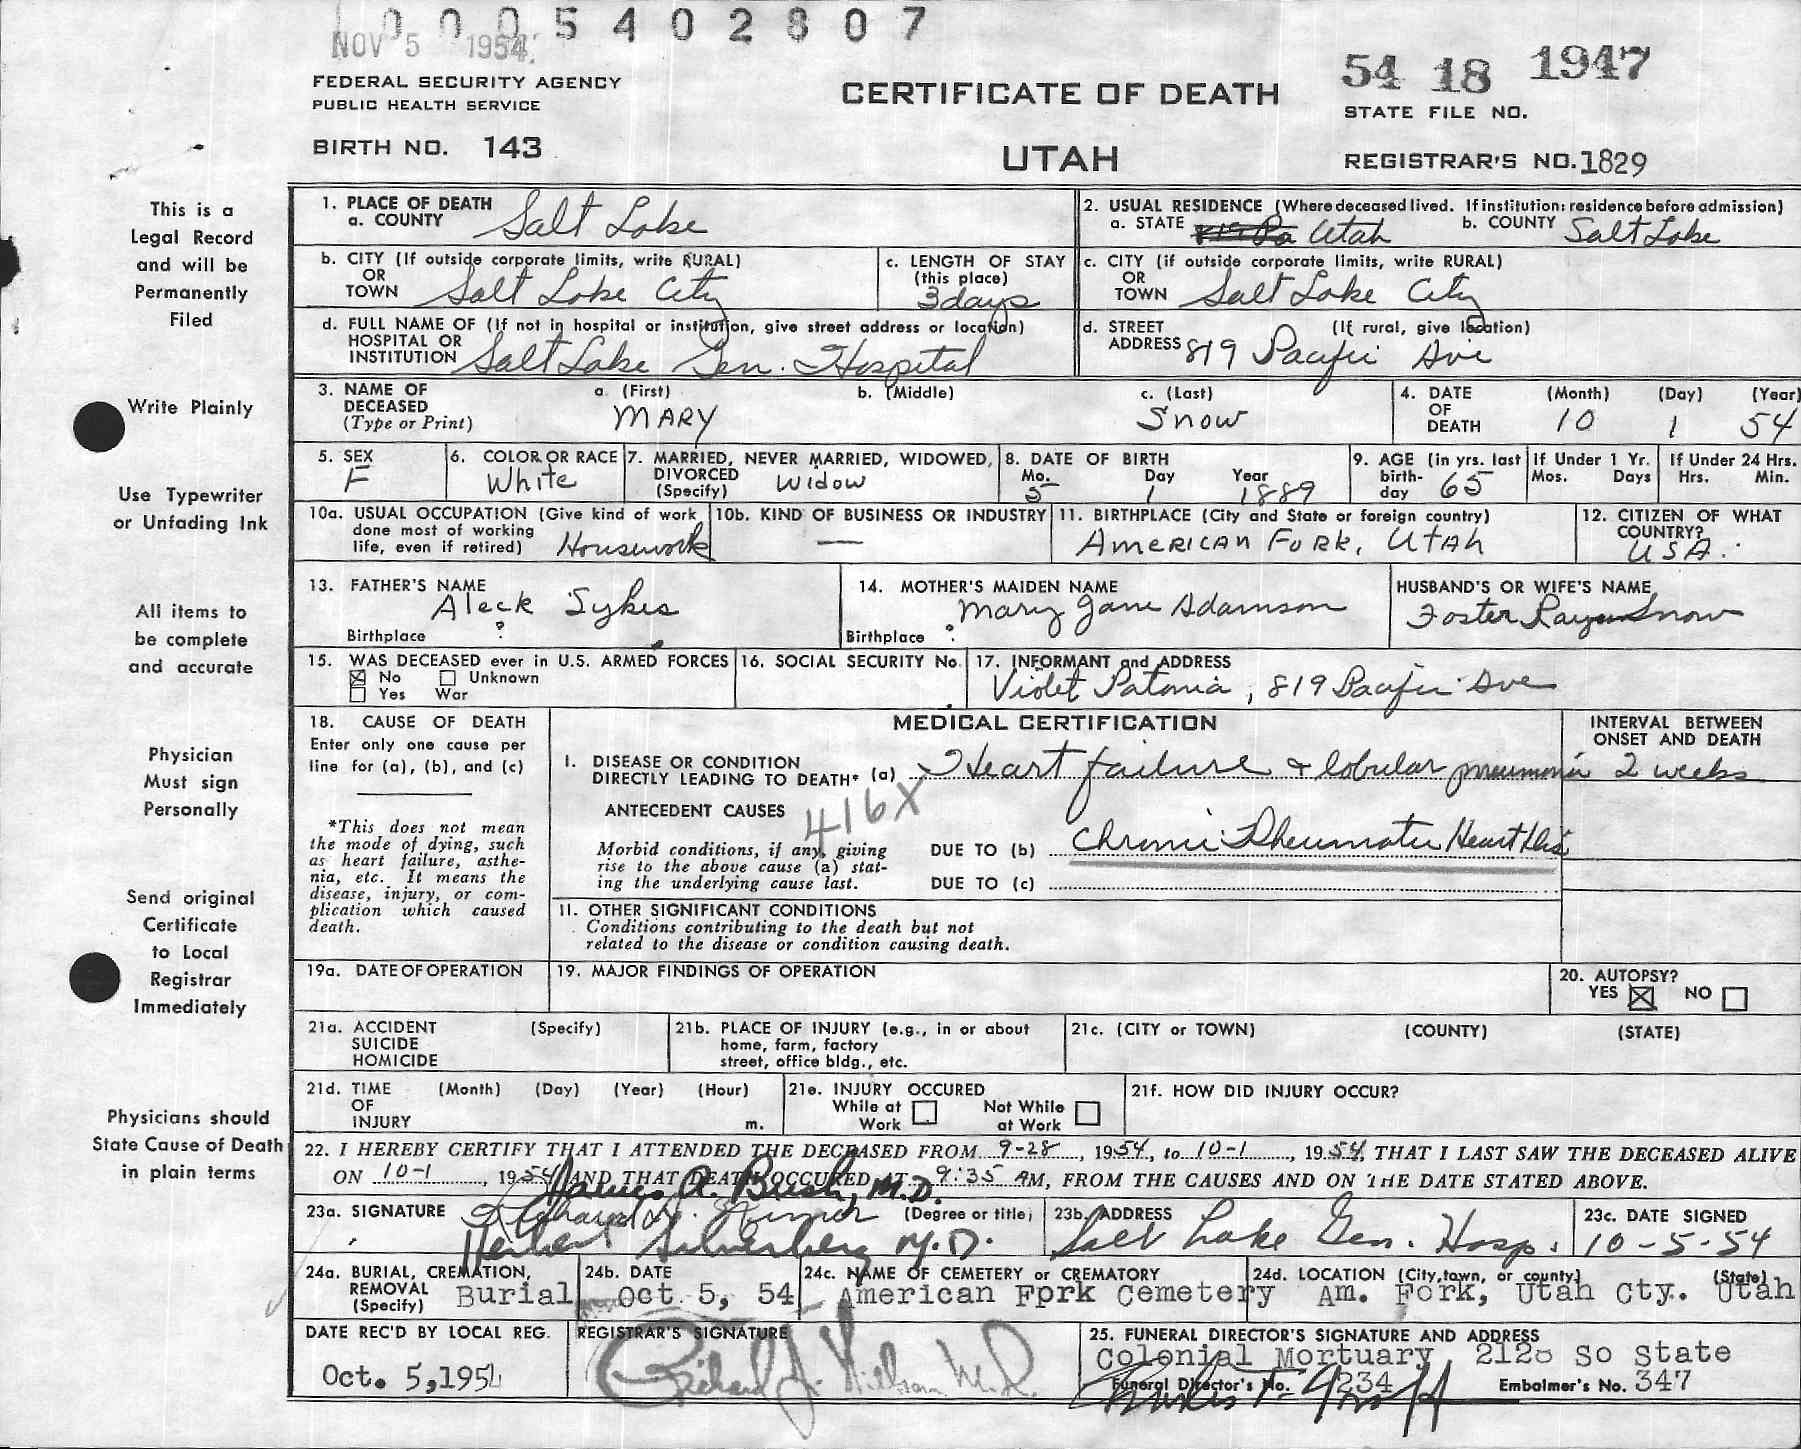 0005402807
NOV 5 1954
54 18 1947
FEDERAL SECURITY AGENCY
PUBLIC HEALTH SERVICE
CERTIFICATE OF DEATH
STATE FILE NO.
BIRTH NO. 143
UTAH
REGISTRAR'S NO. 1829
This is a
Legal Record
and will be
Permanently
Filed
Write Plainly
Use Typewriter
or Unfading Ink
All items to
be complete
and accurate
Physician
Must sign
Personally
Send original
Certificate
to Local
Registrar
Immediately
Physicians should
State Cause of Death
in plain terms
1. PLACE OF DEATH
a. COUNTY Salt Lake
2. USUAL RESIDENCE (Where deceased lived. If institution: residence before admission)
a. STATE Utah b. COUNTY Salt Lake
b. CITY (If outside corporate limits, write RURAL)
OR
TOWN Salt Lake City
c. LENGTH OF STAY
(this place)
3 days
c. CITY (if outside corporate limits, write RURAL)
OR
TOWN Salt Lake City
d. FULL NAME OF (If not in hospital or institution, give street address or location)
HOSPITAL OR
INSTITUTION Salt Lake Gen. Hospital
d. STREET (If rural, give location)
ADDRESS 819 Pacific Ave
3. NAME OF
DECEASED
(Type or Print)
a. (First) b. (Middle) c. (Last)
MARY Snow
4. DATE
OF
DEATH
(Month) (Day) (Year)
10 1 54
5. SEX
F
6. COLOR OR RACE
White
7. MARRIED, NEVER MARRIED, WIDOWED,
DIVORCED
(Specify) Widow
8. DATE OF BIRTH
Mo. Day Year
5 1 1889
9. AGE (in yrs. last
birth-
day 65
If Under 1 Yr.
Mos. Days
If Under 24 Hrs.
Hrs. Min.
10a. USUAL OCCUPATION (Give kind of work
done most of working
life, even if retired) Housework
10b. KIND OF BUSINESS OR INDUSTRY
—
11. BIRTHPLACE (City and State or foreign country)
AMERICAN FORK, UTAH
12. CITIZEN OF WHAT
COUNTRY?
USA.
13. FATHER'S NAME
Aleck Sykes
Birthplace ?
14. MOTHER'S MAIDEN NAME
Mary Jane Adamson
Birthplace ?
HUSBAND'S OR WIFE'S NAME
Foster Snow
15. WAS DECEASED ever in U.S. ARMED FORCES
☒ No ☐ Unknown
☐ Yes War
16. SOCIAL SECURITY No.
17. INFORMANT and ADDRESS
Violet , 819 Pacific Ave
18. CAUSE OF DEATH
Enter only one cause per
line for (a), (b), and (c)
*This does not mean
the mode of dying, such
as heart failure, asthe-
nia, etc. It means the
disease, injury, or com-
plication which caused
death.
MEDICAL CERTIFICATION
INTERVAL BETWEEN
ONSET AND DEATH
I. DISEASE OR CONDITION
DIRECTLY LEADING TO DEATH* (a) Heart failure & lobular pneumonia 2 weeks
ANTECEDENT CAUSES 416X
Morbid conditions, if any, giving
rise to the above cause (a) stat-
ing the underlying cause last.
DUE TO (b) Chronic Rheumatic Heart Dis
DUE TO (c)
11. OTHER SIGNIFICANT CONDITIONS
Conditions contributing to the death but not
related to the disease or condition causing death.
19a. DATE OF OPERATION
19. MAJOR FINDINGS OF OPERATION
20. AUTOPSY?
YES ☒ NO ☐
21a. ACCIDENT (Specify)
SUICIDE
HOMICIDE
21b. PLACE OF INJURY (e.g., in or about
home, farm, factory
street, office bldg., etc.
21c. (CITY or TOWN) (COUNTY) (STATE)
21d. TIME (Month) (Day) (Year) (Hour)
OF
INJURY m.
21e. INJURY OCCURED
While at Work ☐ Not While at Work ☐
21f. HOW DID INJURY OCCUR?
22. I HEREBY CERTIFY THAT I ATTENDED THE DECEASED FROM 9-28, 1954, to 10-1, 1954, THAT I LAST SAW THE DECEASED ALIVE
ON 10-1, 1954, AND THAT DEATH OCCURED AT 9:35 AM, FROM THE CAUSES AND ON THE DATE STATED ABOVE.
James A. Brush, M.D.
23a. SIGNATURE (Degree or title)
Herbert Silverberg M.D.
23b. ADDRESS
Salt Lake Gen. Hosp.
23c. DATE SIGNED
10-5-54
24a. BURIAL, CREMATION,
REMOVAL
(Specify) Burial
24b. DATE
Oct. 5, 54
24c. NAME OF CEMETERY or CREMATORY
American Fprk Cemetery
24d. LOCATION (City, town, or county) (State)
Am. Fork, Utah Cty. Utah
DATE REC'D BY LOCAL REG.
Oct. 5, 1954
REGISTRAR'S SIGNATURE
Richard
25. FUNERAL DIRECTOR'S SIGNATURE AND ADDRESS
Colonial Mortuary 2128 So State
Funeral Director's No. 234 Embalmer's No. 347